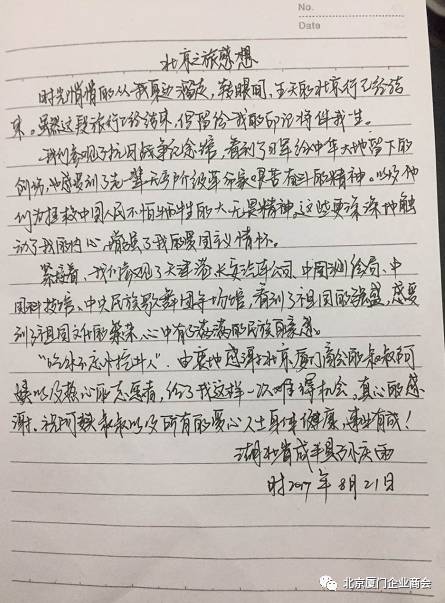 No.
Date
北京之旅感想
时光悄悄的从我身边溜走，转眼间，五天的北京行已经结
束。虽然这段旅行已经结束，但留给我的印记将伴我一生。
我们参观了抗日战争纪念馆，看到了日军给中华大地留下的
创伤，也感受到了老一辈无产阶级革命家艰苦奋斗的精神。以及他
们为拯救中国人民不怕牺牲的大无畏精神。这些要深深地触
动了我的内心，增强了我的爱国主义情怀。
紧接着，我们参观了天津滨长安汽车公司、中国测绘局、中
国科技馆、中央民族歌舞团等场馆，看到了祖国的强盛，感受
到了祖国文化的繁荣，心中有了满满的民族自豪感。
"吃水不忘挖井人"，由衷地感谢北京厦门商会的叔叔阿
姨以及热心的志愿者，给了我这样一次难得机会，真心的感
谢。祝阿姨叔叔以及所有的爱心人士身体健康，事业有成！
湖北省咸丰县 庆雨
时2017年8月21日
北京厦门企业商会